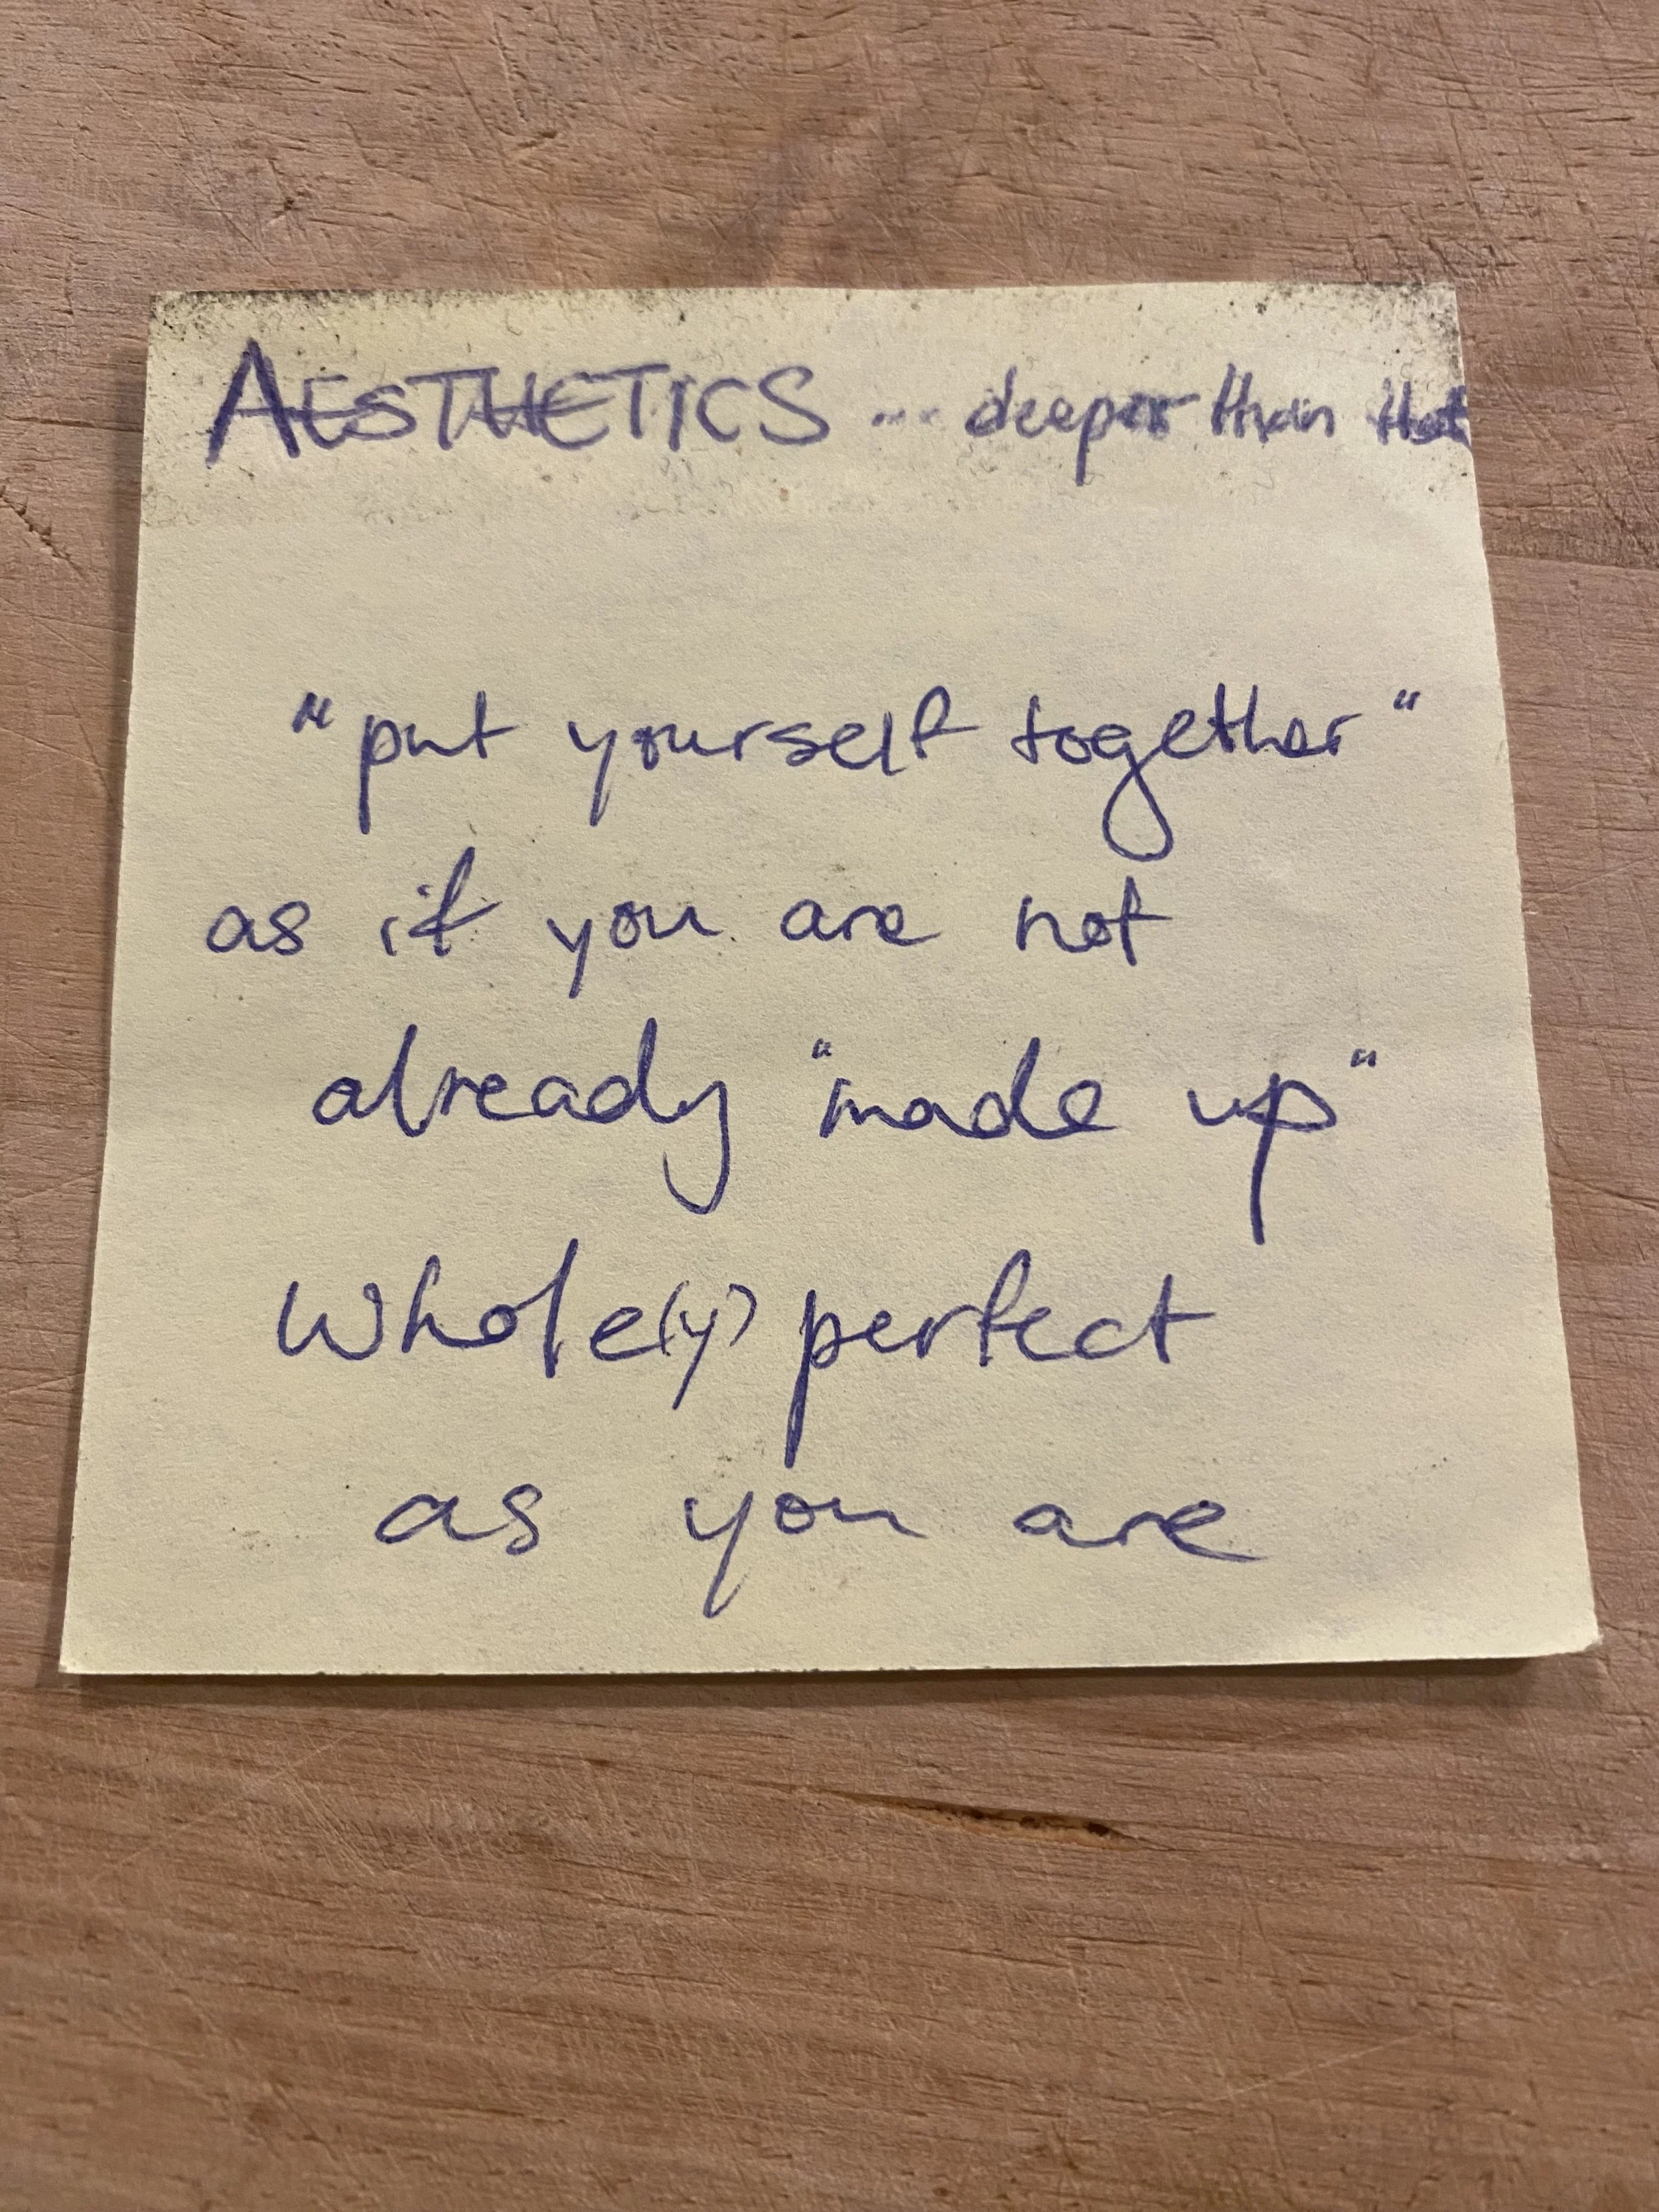 AESTHETICS ... deeper than that
"put yourself together"
as if you are not
already "made up"
whole(y) perfect
as you are